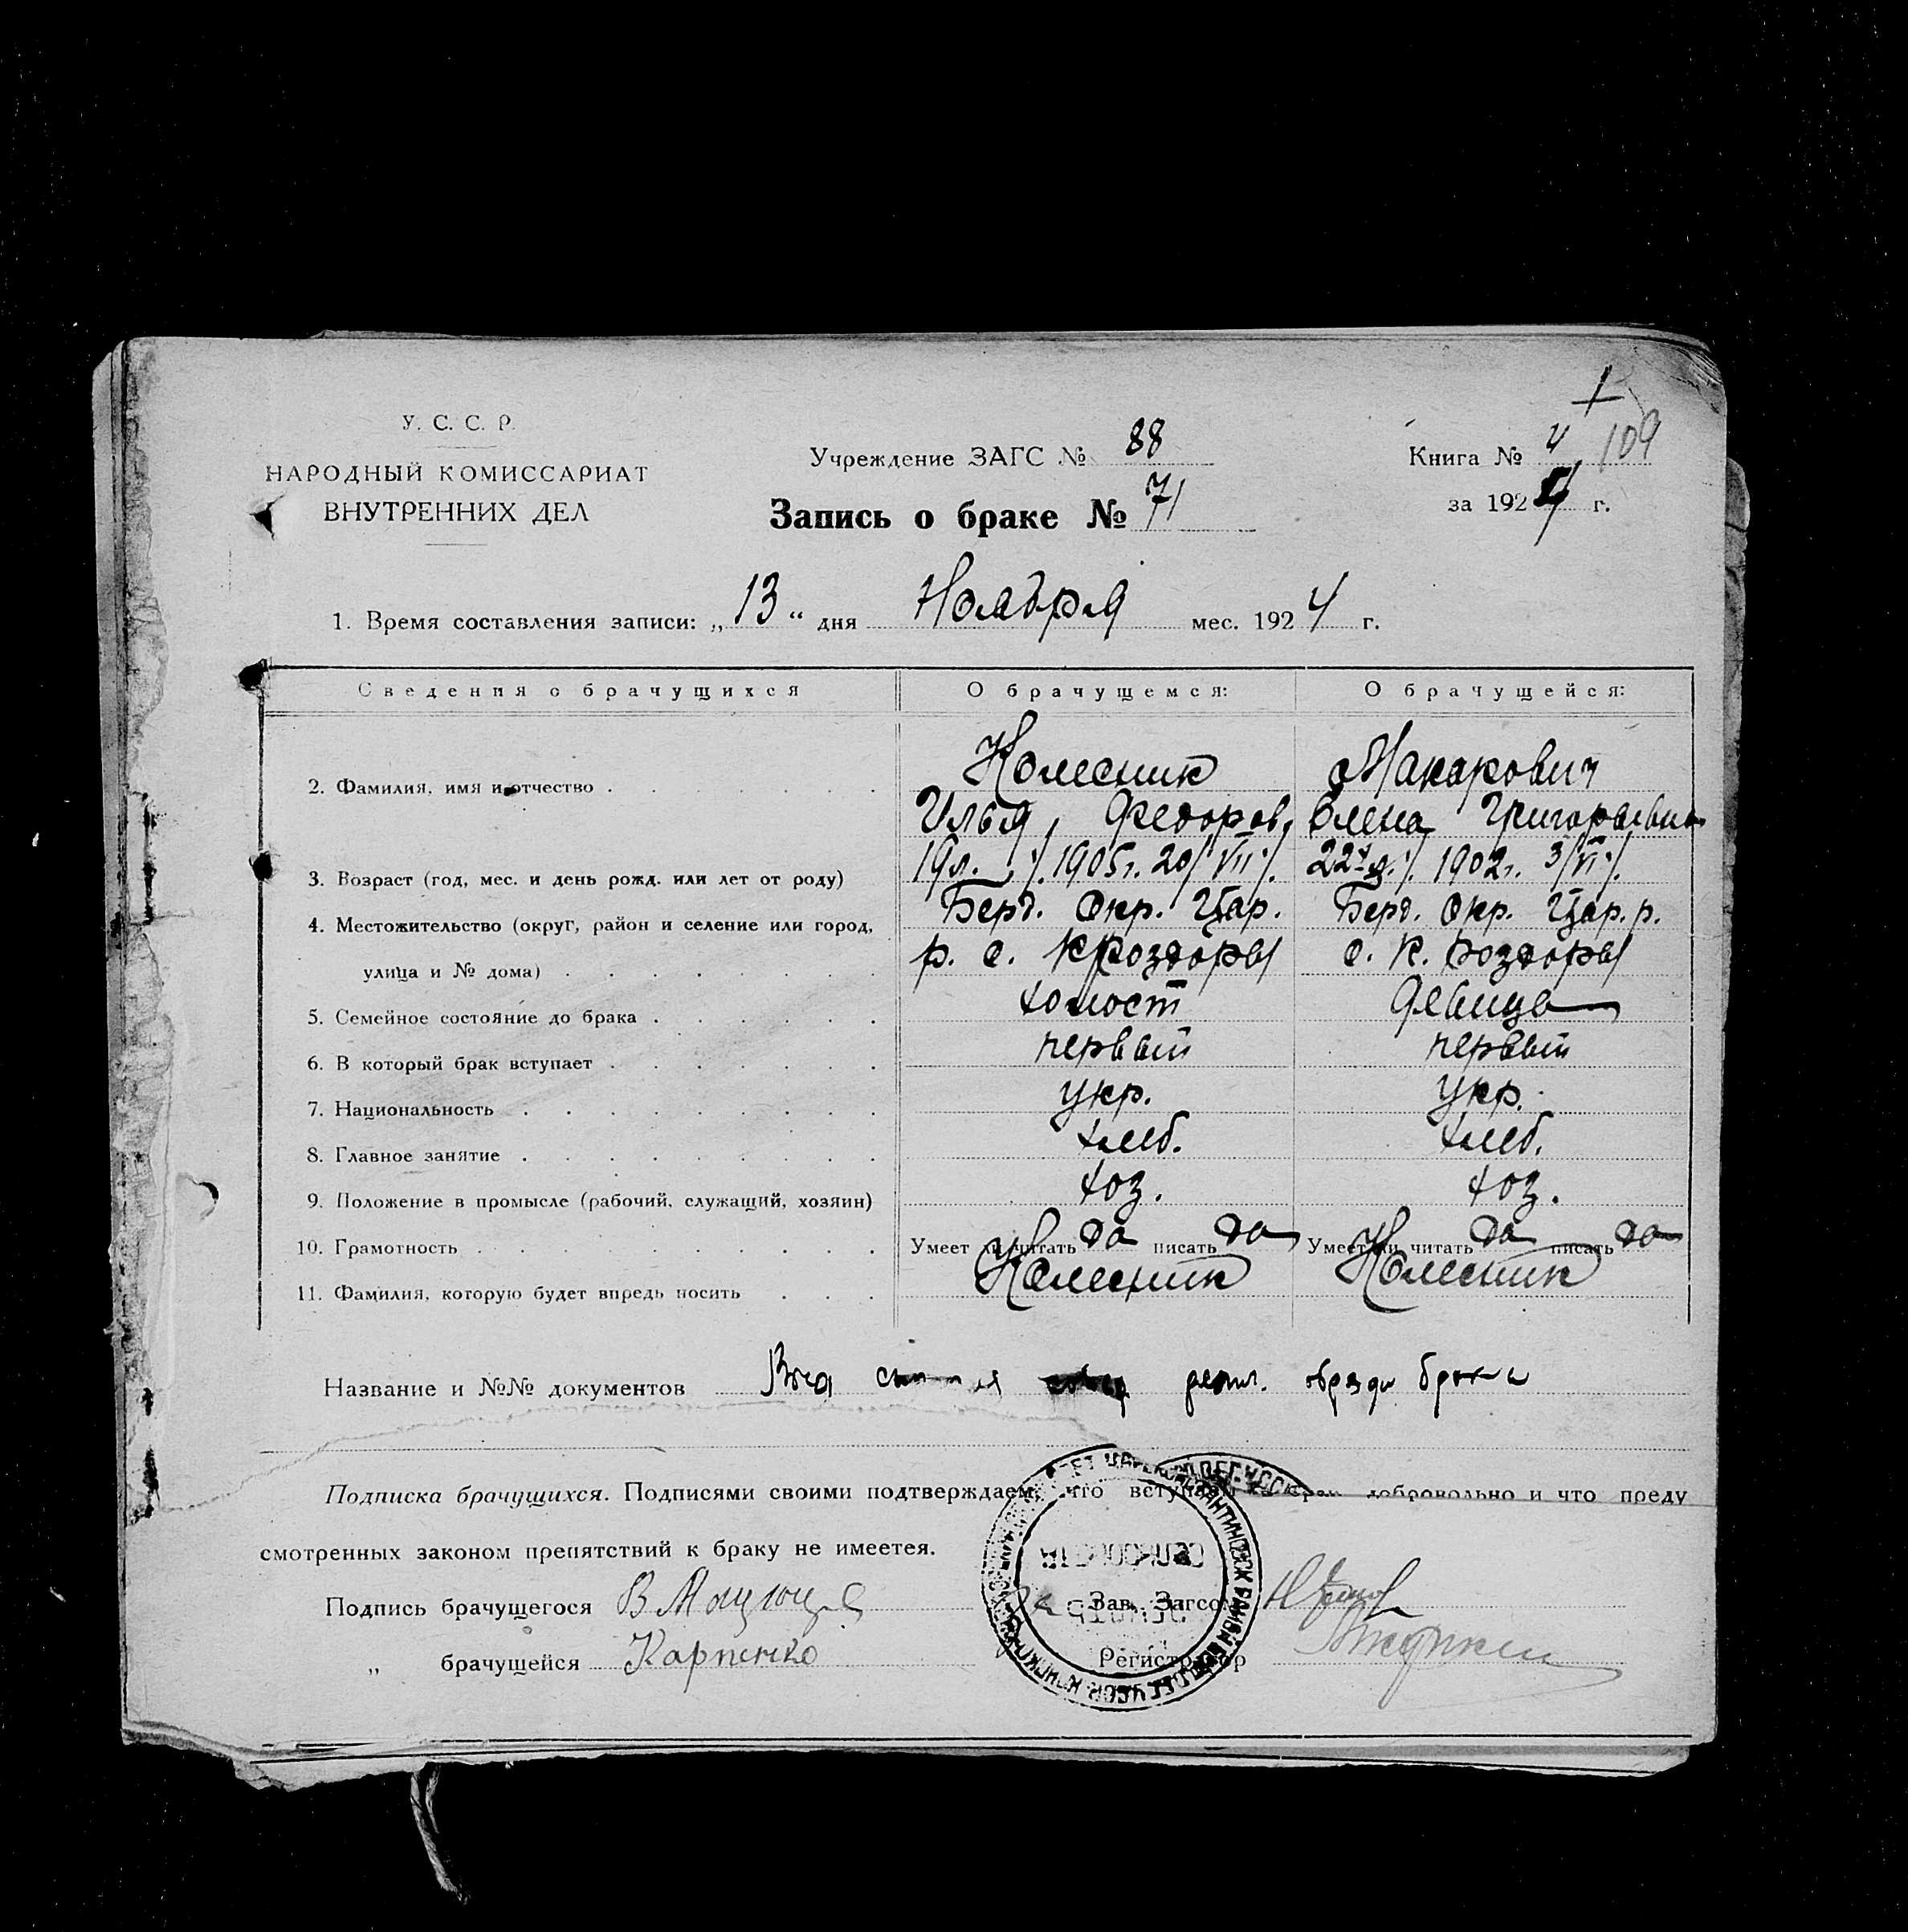 У. С. С. Р.
НАРОДНЫЙ КОМИССАРИАТ
ВНУТРЕННИХ ДЕЛ
Учреждение ЗАГС № 88
Запись о браке № 71
Книга № 4
109
за 1924 г.
1. Время составления записи: „13“ дня Ноября мес. 1924 г.
Сведения о брачущихся О брачущемся: О брачущейся:
Колесник Макарович
2. Фамилия, имя и отчество
Илья Федоров. Елена Григорьевна
3. Возраст (год, мес. и день рожд. или лет от роду) 19 л. /1905 г. 20/VII/. 22 /. 1902 г. 3/VI/.
4. Местожительство (округ, район и селение или город, Берд. Окр. Цар. Берд. Окр. Цар. р.
улица и № дома) р. с. К Роздоры с. К. Роздоры
5. Семейное состояние до брака холост девица
6. В который брак вступает первый первый
7. Национальность укр. укр.
8. Главное занятие хлеб. хлеб.
9. Положение в промысле (рабочий, служащий, хозяин) хоз. хоз.
10. Грамотность Умеет ли читать да писать да Умеет ли читать да писать да
11. Фамилия, которую будет впредь носить Колесник Колесник
Название и №№ документов брака
Подписка брачущихся. Подписями своими подтверждаем, что вступаем в брак добровольно и что преду
смотренных законом препятствий к браку не имеется.
Подпись брачущегося Зав. Загсом
„ брачущейся Карпенко Регистратор